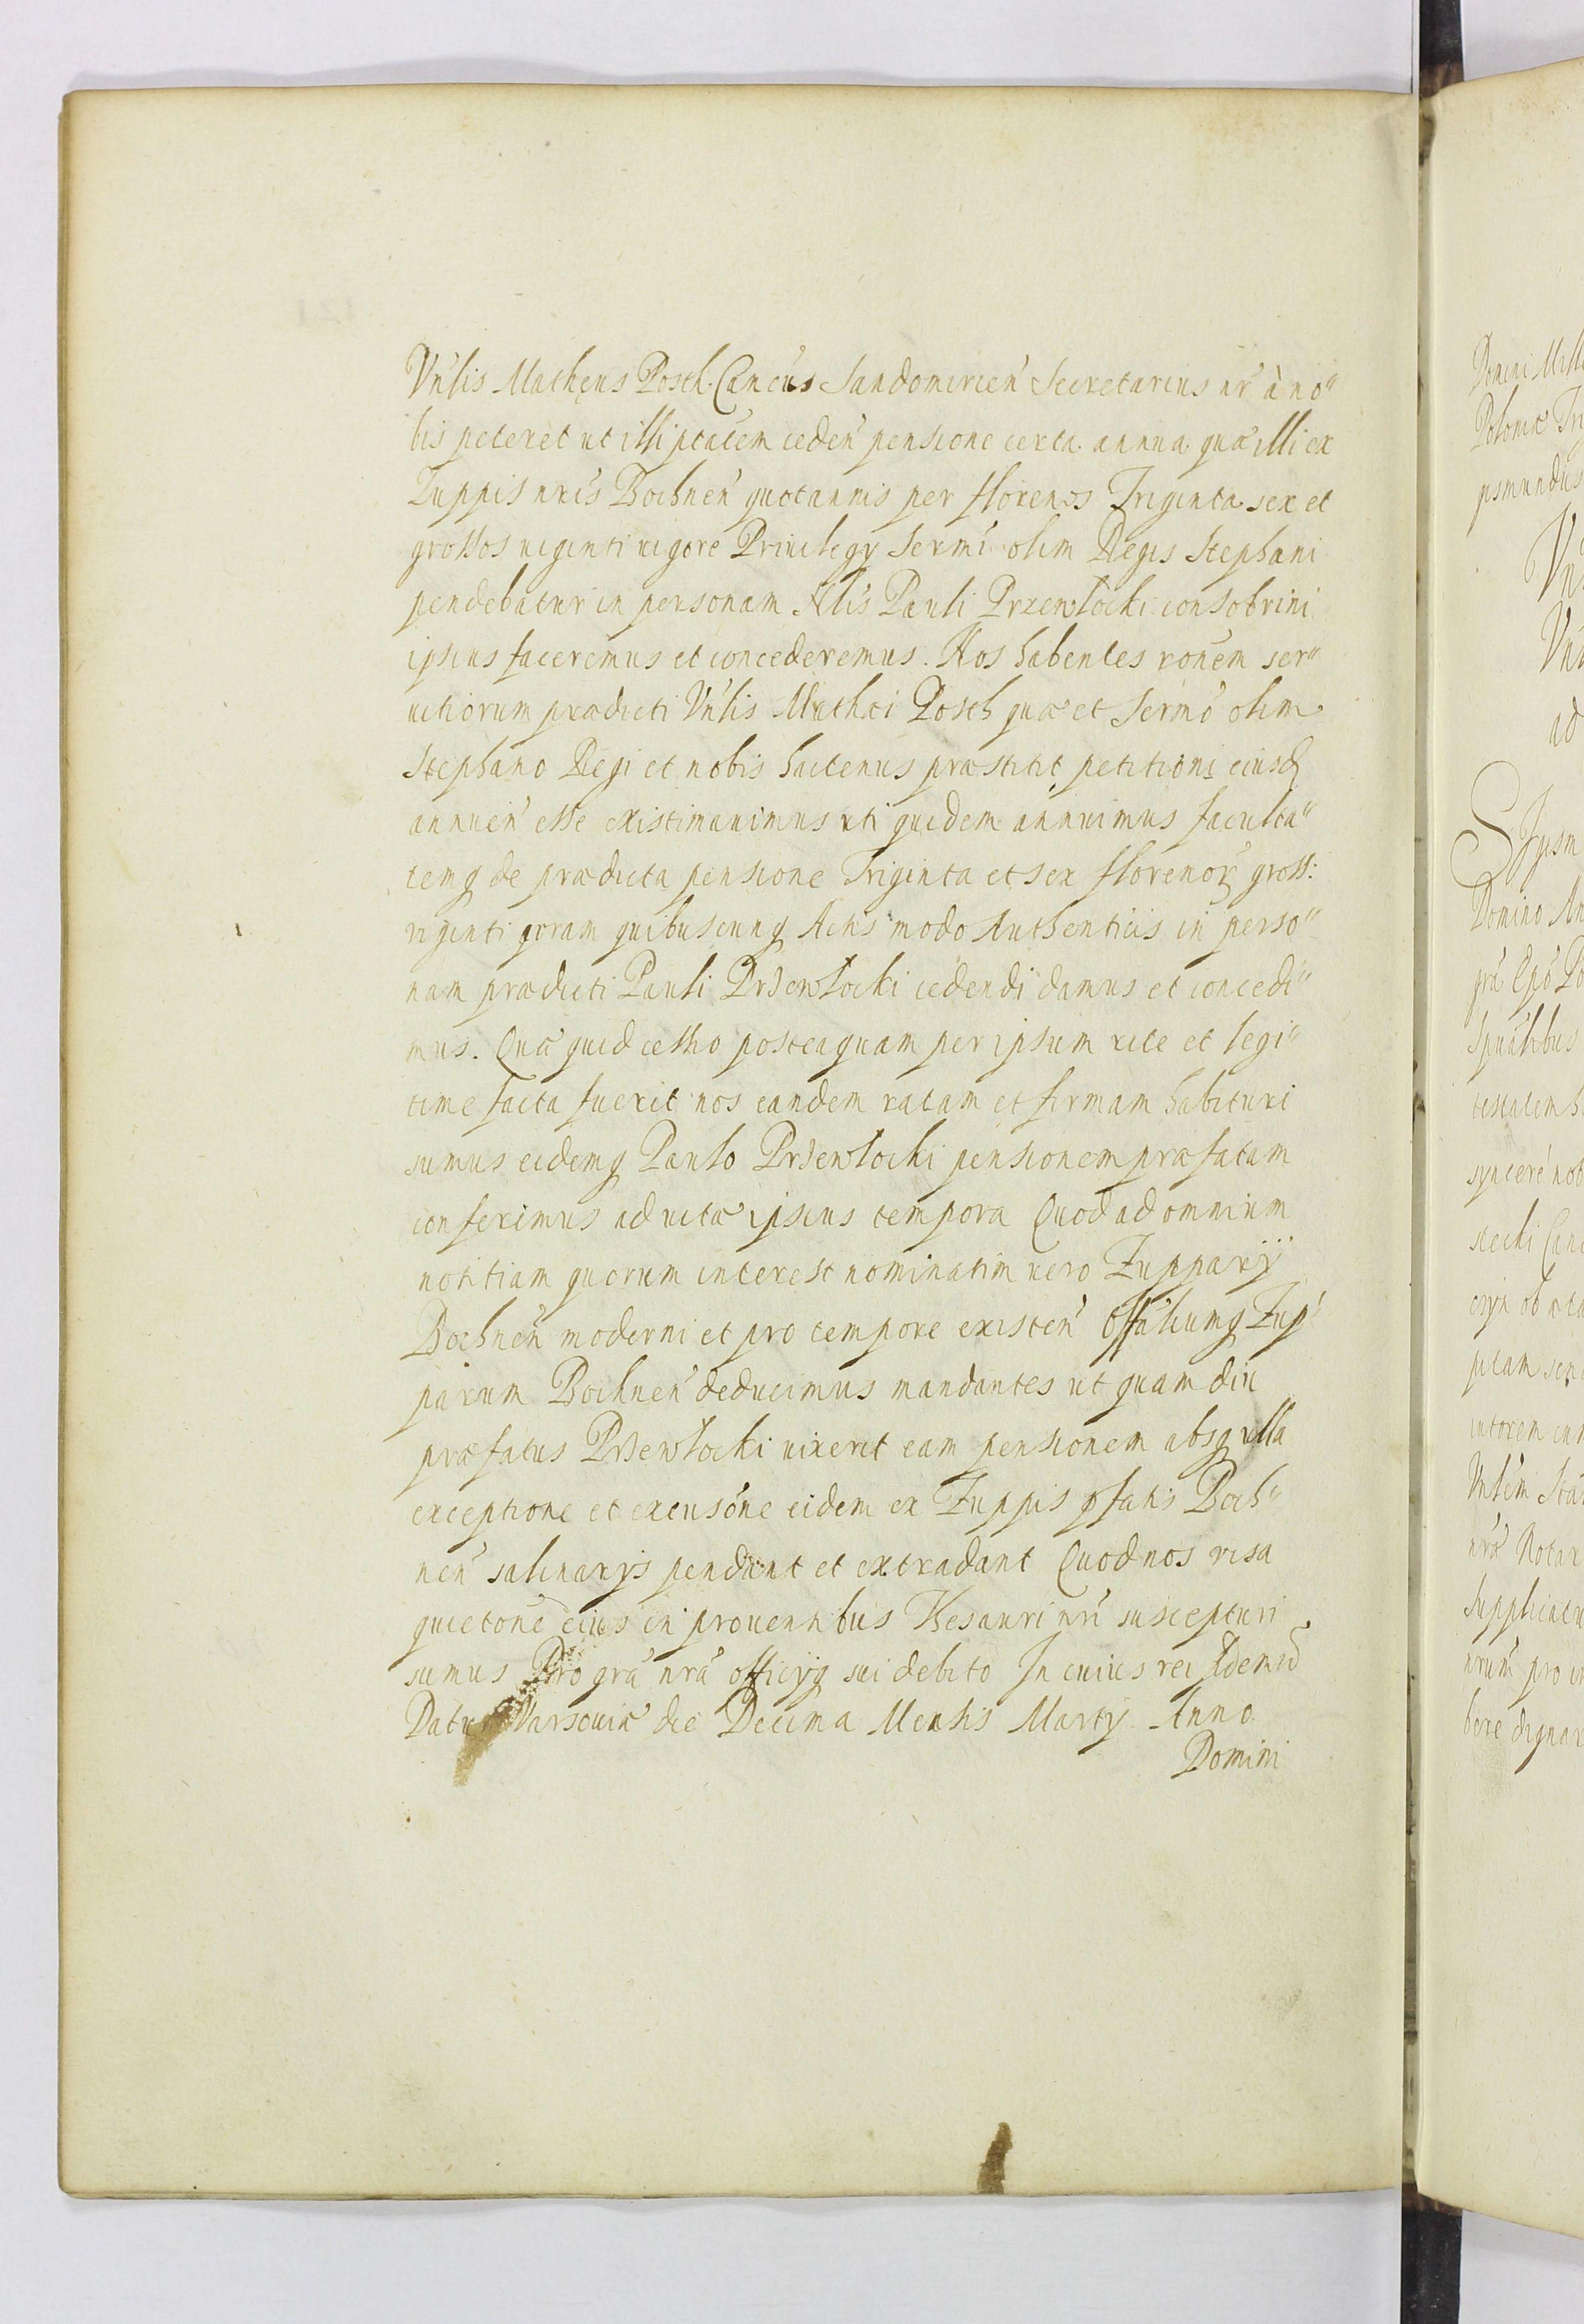 Vn̄lis Matheus Posth. Canc̄us Sandomirien̄ Secretarius nr̄ à no"
bis peteret ut illi ptātem ceden̄ pensione certa annua quæ illi ex
Zuppis nrīs Bochnen̄ quotannis per florenos Triginta sex et
grossos uiginti uigore Priuilegy Sermī olim Regis Stephani
pendebatur in personam Nlis Pauli Przewłocki consobrini
ipsius faceremus et concederemus. Nos habentes ronēm ser"
uitiorum prædicti Vn̄lis Mathæi Posth quæ et Sermō olim
Stephano Regi et nobis hactenus præstitit petitioni eiusd
annuen̄ esse existimauimus uti quidem annuimus faculta"
temq de prædicta pensione Triginta et sex florenor̄ gross:
uiginti coram quibuscunq Actis modo Authenticis in perso"
nam prædicti Pauli Przewłocki cedendi damus et concedi"
mus. Quæ quid cessio posteaquam per ipsum rite et legi"
time facta fuerit nos eandem ratam et firmam habituri
sumus eidemq Paulo Przewłocki pensionem præfatam
conferimus ad uitæ ipsius tempora Quod ad omnium
notitiam quorum interest nominatim uero Zupparÿ
Bochnen̄ moderni et pro tempore existen̄ Offāliumq Zup"
parum Bochnen̄ deducimus mandantes ut quam diu
præfatus Przewłocki uixerit eam pensionem absq ulla
exceptione et excusōne eidem ex Zuppis pfatis Boch"
nen̄ salinarys pendant et extradant Quod nos visa
quietōne eius in prouentibus Thesauri nrī suscepturi
sumus Pro grā nrā officyq sui debito In cuius rei fidem
Datum Varsouiæ die Decima Mensis Marty Anno
Domini
Domini
Poloniæ
Domino
Spuālibus
testatem
synceré
ptam
Vnlēm
nrā Notar
nrūm pro
bere dignar